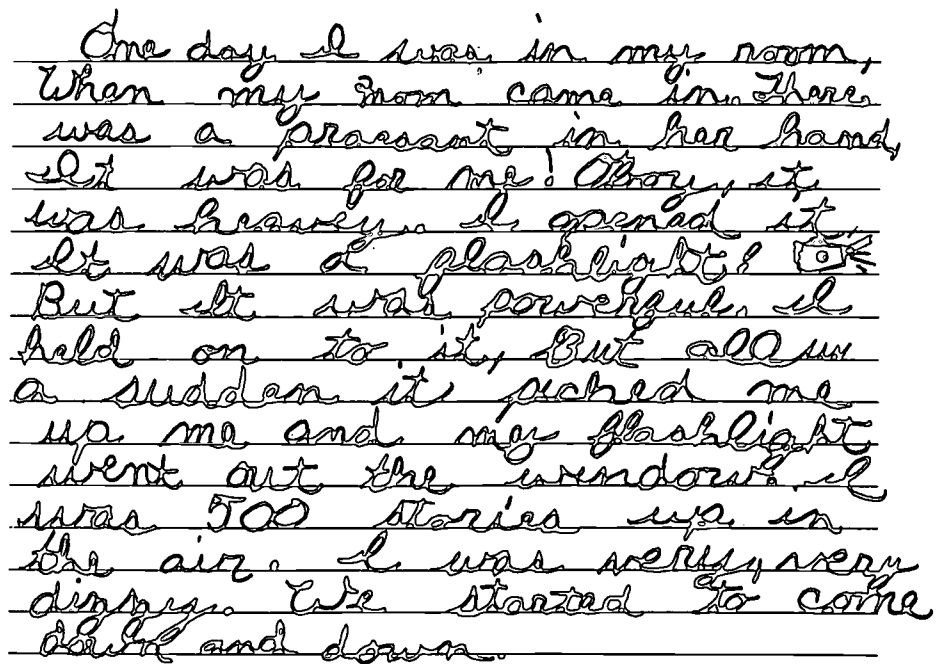 One day I was in my room,
When my mom came in. There
was a praesant in her hand,
It was for me! Oboy, it
was heavey. I opened it,
It was a flashlight!
But It was powerful. I
held on to it, But all uv
a sudden it piched me
up me and my flashlight
went out the window. I
was 500 stories up in
the air. I was very, very
dizzyy. We started to come
down and down.